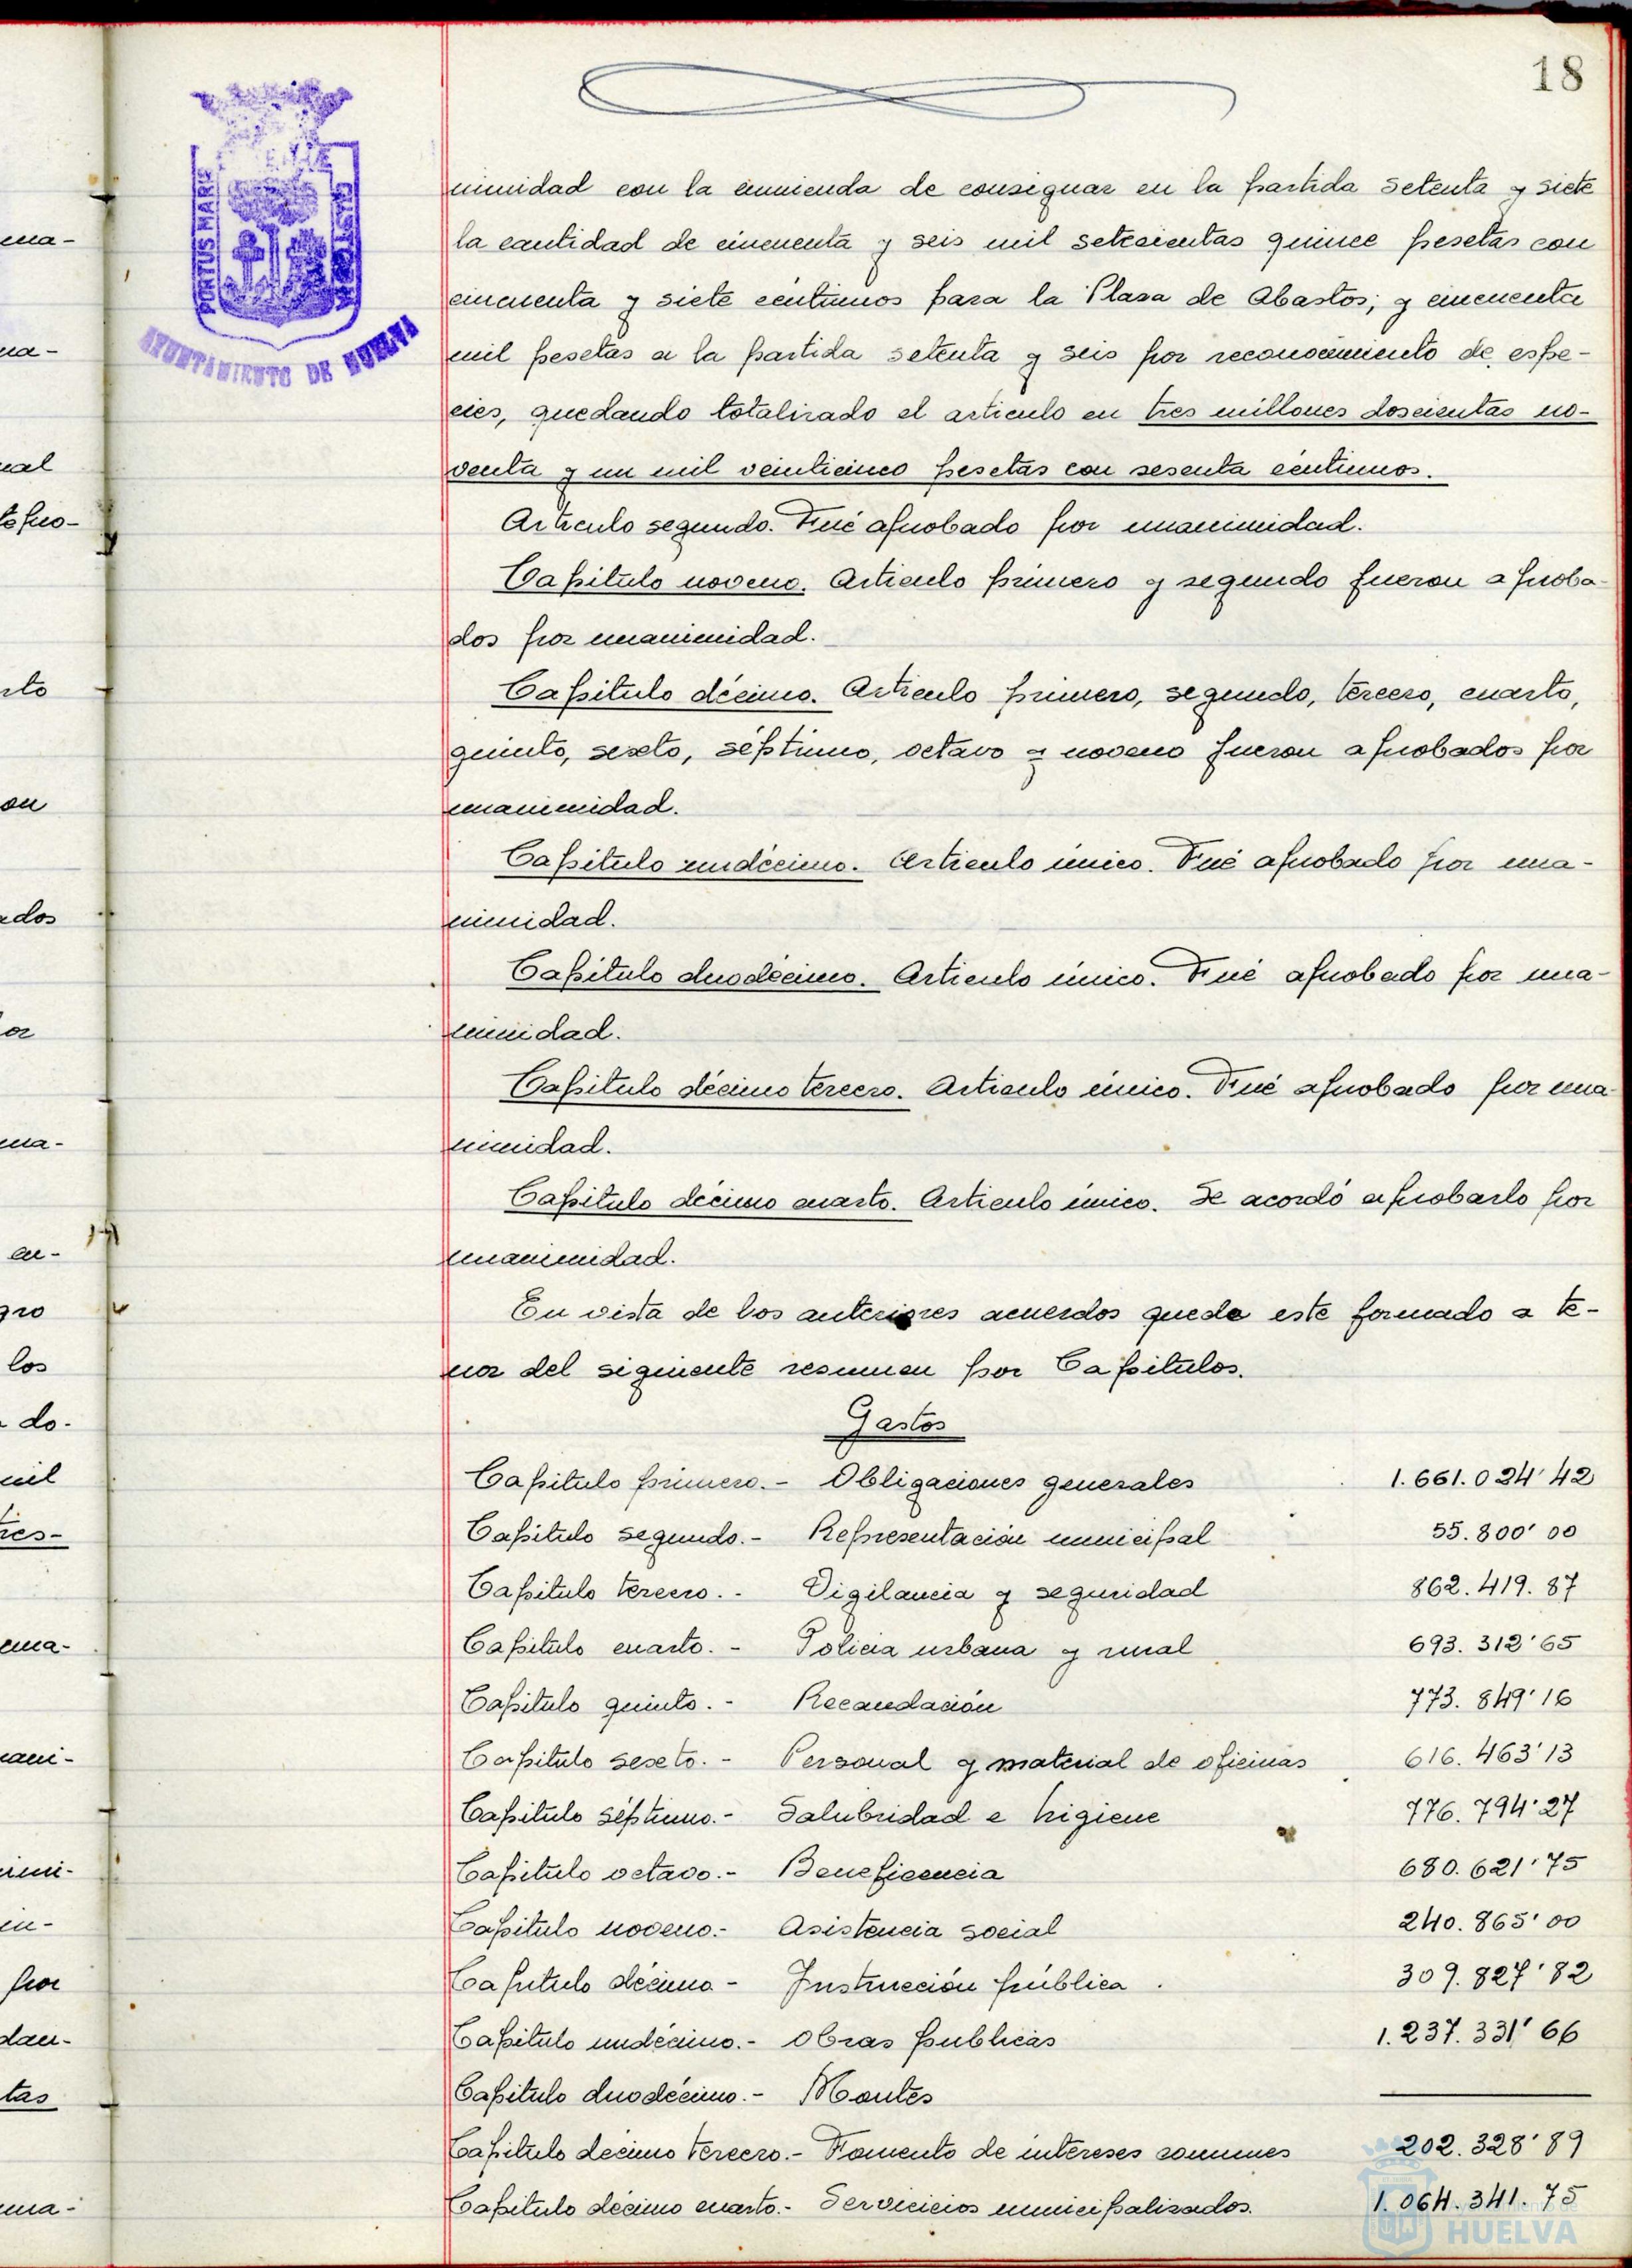 18
PORTUS MARIS
AYUNTAMIENTO DE HUELVA
nimidad con la enmienda de consignar en la partida setenta y siete
la cantidad de cincuenta y seis mil setecientas quince pesetas con
cincuenta y siete céntimos para la Plaza de Abastos; y cincuenta
mil pesetas a la partida setenta y seis por reconocimiento de espe-
cies, quedando totalizado el articulo en tres millones doscientas no-
venta y un mil veinticinco pesetas con sesenta céntimos.
Articulo segundo. Fué aprobado por unanimidad.
Capitulo noveno. Articulo primero y segundo fueron aproba-
dos por unanimidad.
Capitulo décimo. Articulo primero, segundo, tercero, cuarto,
quinto, sexto, séptimo, octavo y noveno fueron aprobados por
unanimidad.
Capitulo undécimo. Articulo único. Fué aprobado por una-
nimidad.
Capitulo duodécimo. Articulo único. Fué aprobado por una-
nimidad.
Capitulo décimo tercero. Articulo único. Fué aprobado por una-
nimidad.
Capitulo décimo cuarto. Articulo único. Se acordó aprobarlo por
unanimidad.
En vista de los anteriores acuerdos queda este formado a te-
nor del siguiente resumen por Capitulos.
Gastos
Capitulo primero.- Obligaciones generales 1.661.024'42
Capitulo segundo.- Representación municipal 55.800'00
Capitulo tercero.- Vigilancia y seguridad 862.419.87
Capitulo cuarto.- Policia urbana y rural 693.312'65
Capitulo quinto.- Recaudación 773.849'16
Capitulo sexto.- Personal y material de oficinas 616.463'13
Capitulo séptimo.- Salubridad e higiene 776.794'27
Capitulo octavo.- Beneficencia 680.621'75
Capitulo noveno.- Asistencia social 240.865'00
Capitulo décimo- Instrucción pública 309.827'82
Capitulo undécimo.- Obras publicas 1.237.331'66
Capitulo duodécimo.- Montes
Capitulo decimo tercero.- Fomento de intereses comunes 202.328'89
Capitulo décimo cuarto.- Servicicios municipalizados. 1.064.341.75
HUELVA